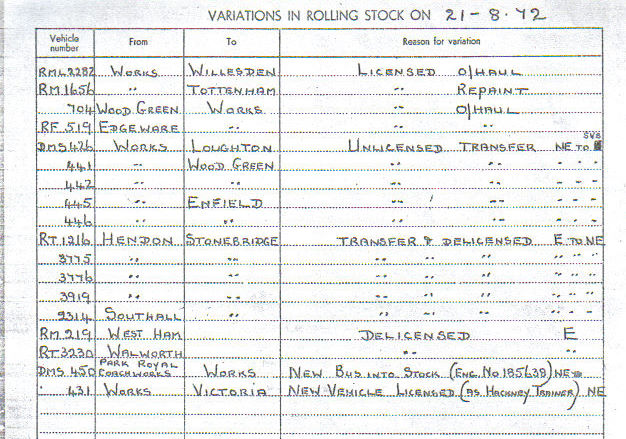 VARIATIONS IN ROLLING STOCK ON 21-8-72
Vehicle number From To Reason for variation
RML2282 WORKS WILLESDEN LICENSED O/HAUL
RM1656 " TOTTENHAM " REPAINT
704 WOOD GREEN WORKS " O/HAUL
RF 519 EDGEWARE " " "
DMS 426 WORKS LOUGHTON UNLICENSED TRANSFER NE TO SVS
441 " WOOD GREEN " " " " "
442 " " " " " " "
445 " ENFIELD " " " " "
446 " " " " " " "
RT1216 HENDON STONEBRIDGE TRANSFER & DELICENSED E TO NE
3775 " " " " " " " "
3776 " " " " " " " "
3919 " " " " " " " "
2314 SOUTHALL " " " " " " "
RM 219 WEST HAM DELICENSED E
RT3230 WALWORTH " "
DMS 450 PARK ROYAL COACHWORKS WORKS NEW BUS INTO STOCK (ENG. No 185638) NE
" 431 WORKS VICTORIA NEW VEHICLE LICENSED (AS HACKNEY TRAINER) NE